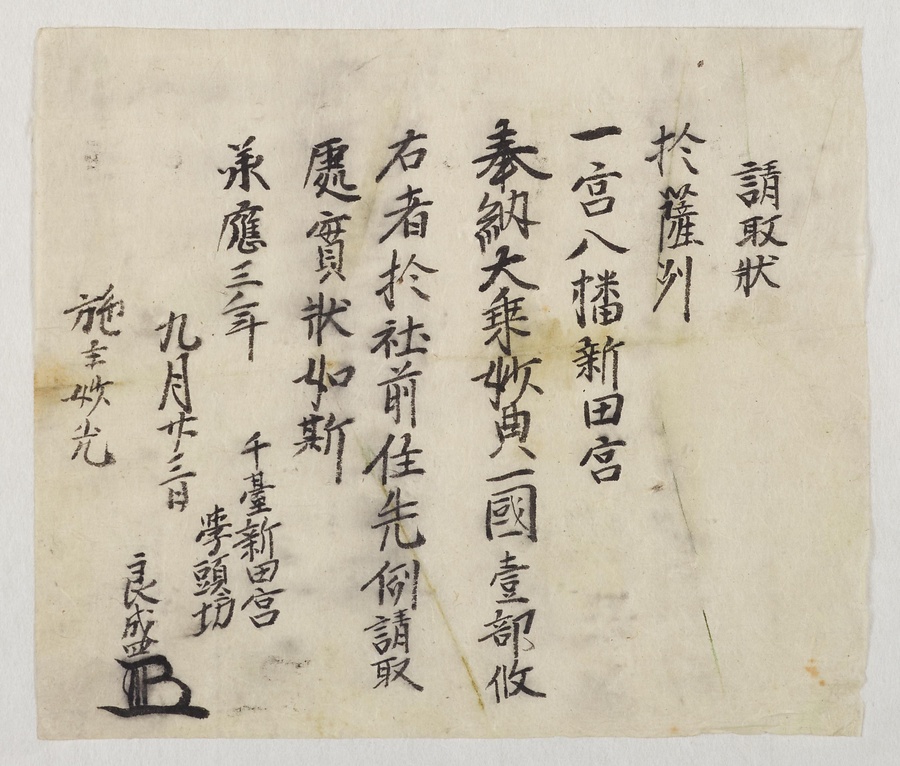 請取状
於薩州
一宮八幡新田宮
奉納大乗妙典一國壹部攸
右者於社前任先例請取
處實状如斯
承應三年
九月廿三日
千臺新田宮
學頭坊
良盛
施主妙光